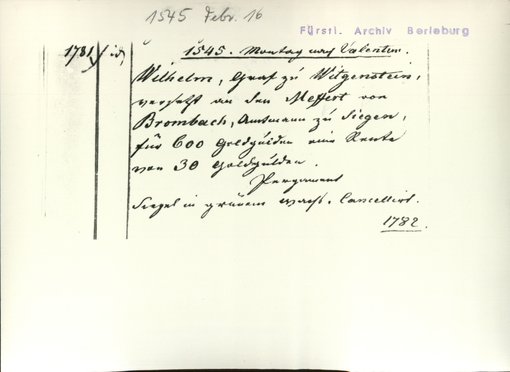 1545 Febr. 16
Fürstl. Archiv Berleburg
1781
1545. Montag nach Valentin.
Wilhelm, Graf zu Witgenstein,
versetzt an den Meffert von
Brombach, Amtmann zu Siegen,
für 600 Goldgulden eine Rente
von 30 Goldgulden.
Pergament
Siegel in grünem Wachs. Cancelliert.
1782.